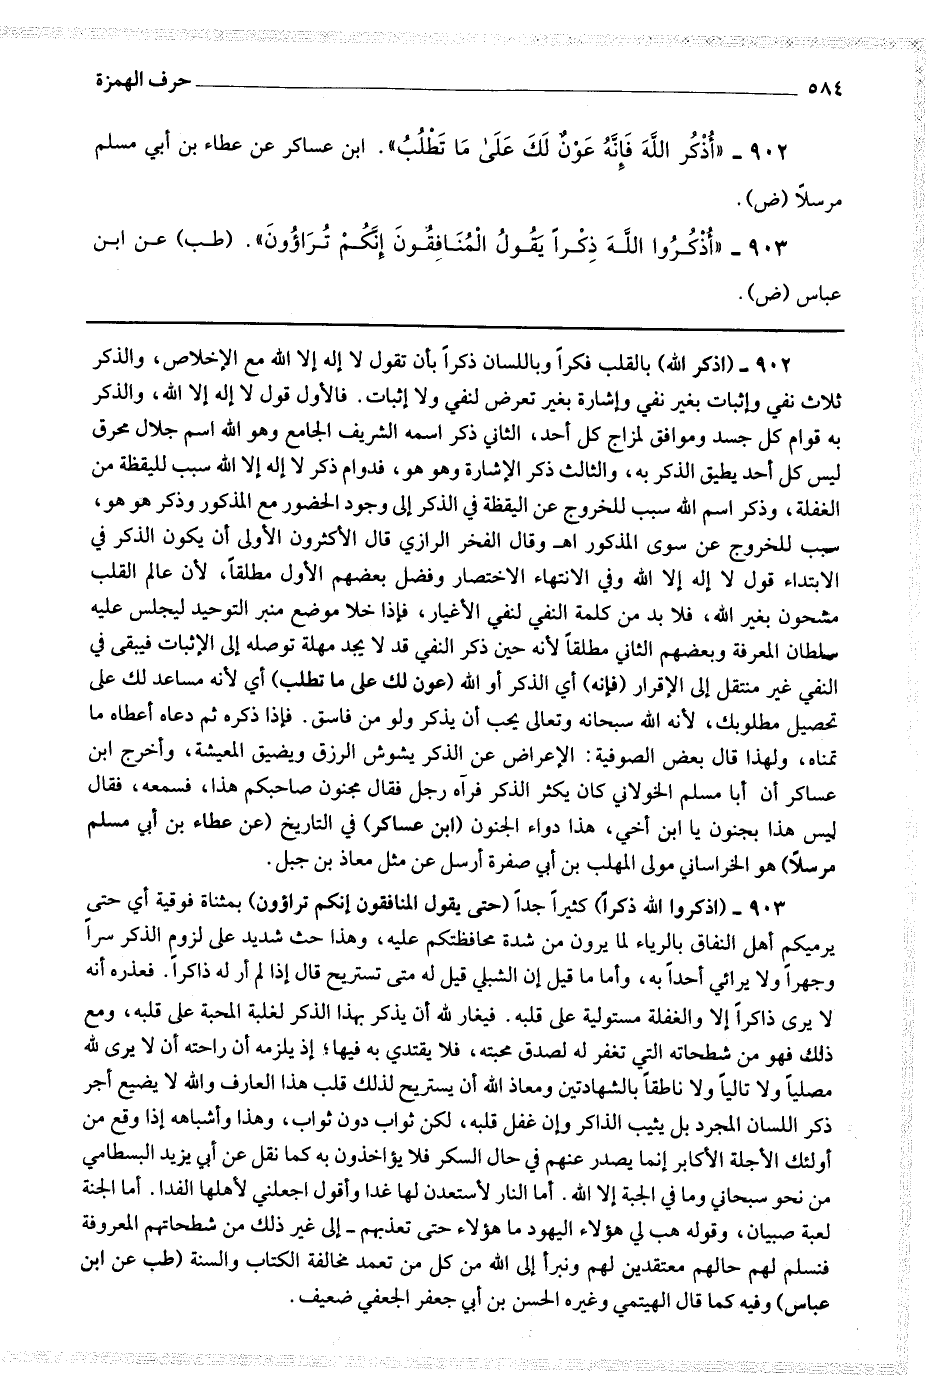 ٥٨٤ حرف الهمزة
٩٠٢ ـ «أُذْكُرِ اللَّهَ فَإِنَّهُ عَوْنٌ لَكَ عَلَىٰ مَا تَطْلُبُ». ابن عساكر عن عطاء بن أبي مسلم
مرسلاً (ض).
٩٠٣ ـ «أُذْكُرُوا اللَّهَ ذِكْراً يَقُولُ الْمُنَافِقُونَ إِنَّكُمْ تُرَاؤُونَ». (طب) عن ابن
عباس (ض).
٩٠٢ ـ (اذكر الله) بالقلب فكراً وباللسان ذكراً بأن تقول لا إله إلا الله مع الإخلاص، والذكر
ثلاث نفي وإثبات بغير نفي وإشارة بغير تعرض لنفي ولا إثبات. فالأول قول لا إله إلا الله، والذكر
به قوام كل جسد وموافق لمزاج كل أحد، الثاني ذكر اسمه الشريف الجامع وهو الله اسم جلال محرق
ليس كل أحد يطيق الذكر به، والثالث ذكر الإشارة وهو هو، فدوام ذكر لا إله إلا الله سبب لليقظة من
الغفلة، وذكر اسم الله سبب للخروج عن اليقظة في الذكر إلى وجود الحضور مع المذكور وذكر هو هو،
سبب للخروج عن سوى المذكور اهـ وقال الفخر الرازي قال الأكثرون الأولى أن يكون الذكر في
الابتداء قول لا إله إلا الله وفي الانتهاء الاختصار وفضل بعضهم الأول مطلقاً، لأن عالم القلب
مشحون بغير الله، فلا بد من كلمة النفي لنفي الأغيار، فإذا خلا موضع منبر التوحيد ليجلس عليه
سلطان المعرفة وبعضهم الثاني مطلقاً لأنه حين ذكر النفي قد لا يجد مهلة توصله إلى الإثبات فيبقى في
النفي غير منتقل إلى الإقرار (فإنه) أي الذكر أو الله (عون لك على ما تطلب) أي لأنه مساعد لك على
تحصيل مطلوبك، لأنه الله سبحانه وتعالى يحب أن يذكر ولو من فاسق. فإذا ذكره ثم دعاه أعطاه ما
تمناه، ولهذا قال بعض الصوفية: الإعراض عن الذكر يشوش الرزق ويضيق المعيشة، وأخرج ابن
عساكر أن أبا مسلم الخولاني كان يكثر الذكر فرآه رجل فقال مجنون صاحبكم هذا، فسمعه، فقال
ليس هذا بجنون يا ابن أخي، هذا دواء الجنون (ابن عساكر) في التاريخ (عن عطاء بن أبي مسلم
مرسلاً) هو الخراساني مولى المهلب بن أبي صفرة أرسل عن مثل معاذ بن جبل.
٩٠٣ ـ (اذكروا الله ذكراً) كثيراً جداً (حتى يقول المنافقون إنكم تراؤون) بمثناة فوقية أي حتى
يرميكم أهل النفاق بالرياء لما يرون من شدة محافظتكم عليه، وهذا حث شديد على لزوم الذكر سراً
وجهراً ولا يرائي أحداً به، وأما ما قيل إن الشبلي قيل له متى تستريح قال إذا لم أر له ذاكراً. فعذره أنه
لا يرى ذاكراً إلا والغفلة مستولية على قلبه. فيغار لله أن يذكر بهذا الذكر لغلبة المحبة على قلبه، ومع
ذلك فهو من شطحاته التي تغفر له لصدق محبته، فلا يقتدي به فيها؛ إذ يلزمه أن راحته أن لا يرى لله
مصلياً ولا تالياً ولا ناطقاً بالشهادتين ومعاذ الله أن يستريح لذلك قلب هذا العارف والله لا يضيع أجر
ذكر اللسان المجرد بل يثيب الذاكر وإن غفل قلبه، لكن ثواب دون ثواب، وهذا وأشباهه إذا وقع من
أولئك الأجلة الأكابر إنما يصدر عنهم في حال السكر فلا يؤاخذون به كما نقل عن أبي يزيد البسطامي
من نحو سبحاني وما في الجبة إلا الله. أما النار لأستعدن لها غدا وأقول اجعلني لأهلها الفدا. أما الجنة
لعبة صبيان، وقوله هب لي هؤلاء اليهود ما هؤلاء حتى تعذبهم ـ إلى غير ذلك من شطحاتهم المعروفة
فنسلم لهم حالهم معتقدين لهم ونبرأ إلى الله من كل من تعمد مخالفة الكتاب والسنة (طب عن ابن
عباس) وفيه كما قال الهيتمي وغيره الحسن بن أبي جعفر الجعفي ضعيف.